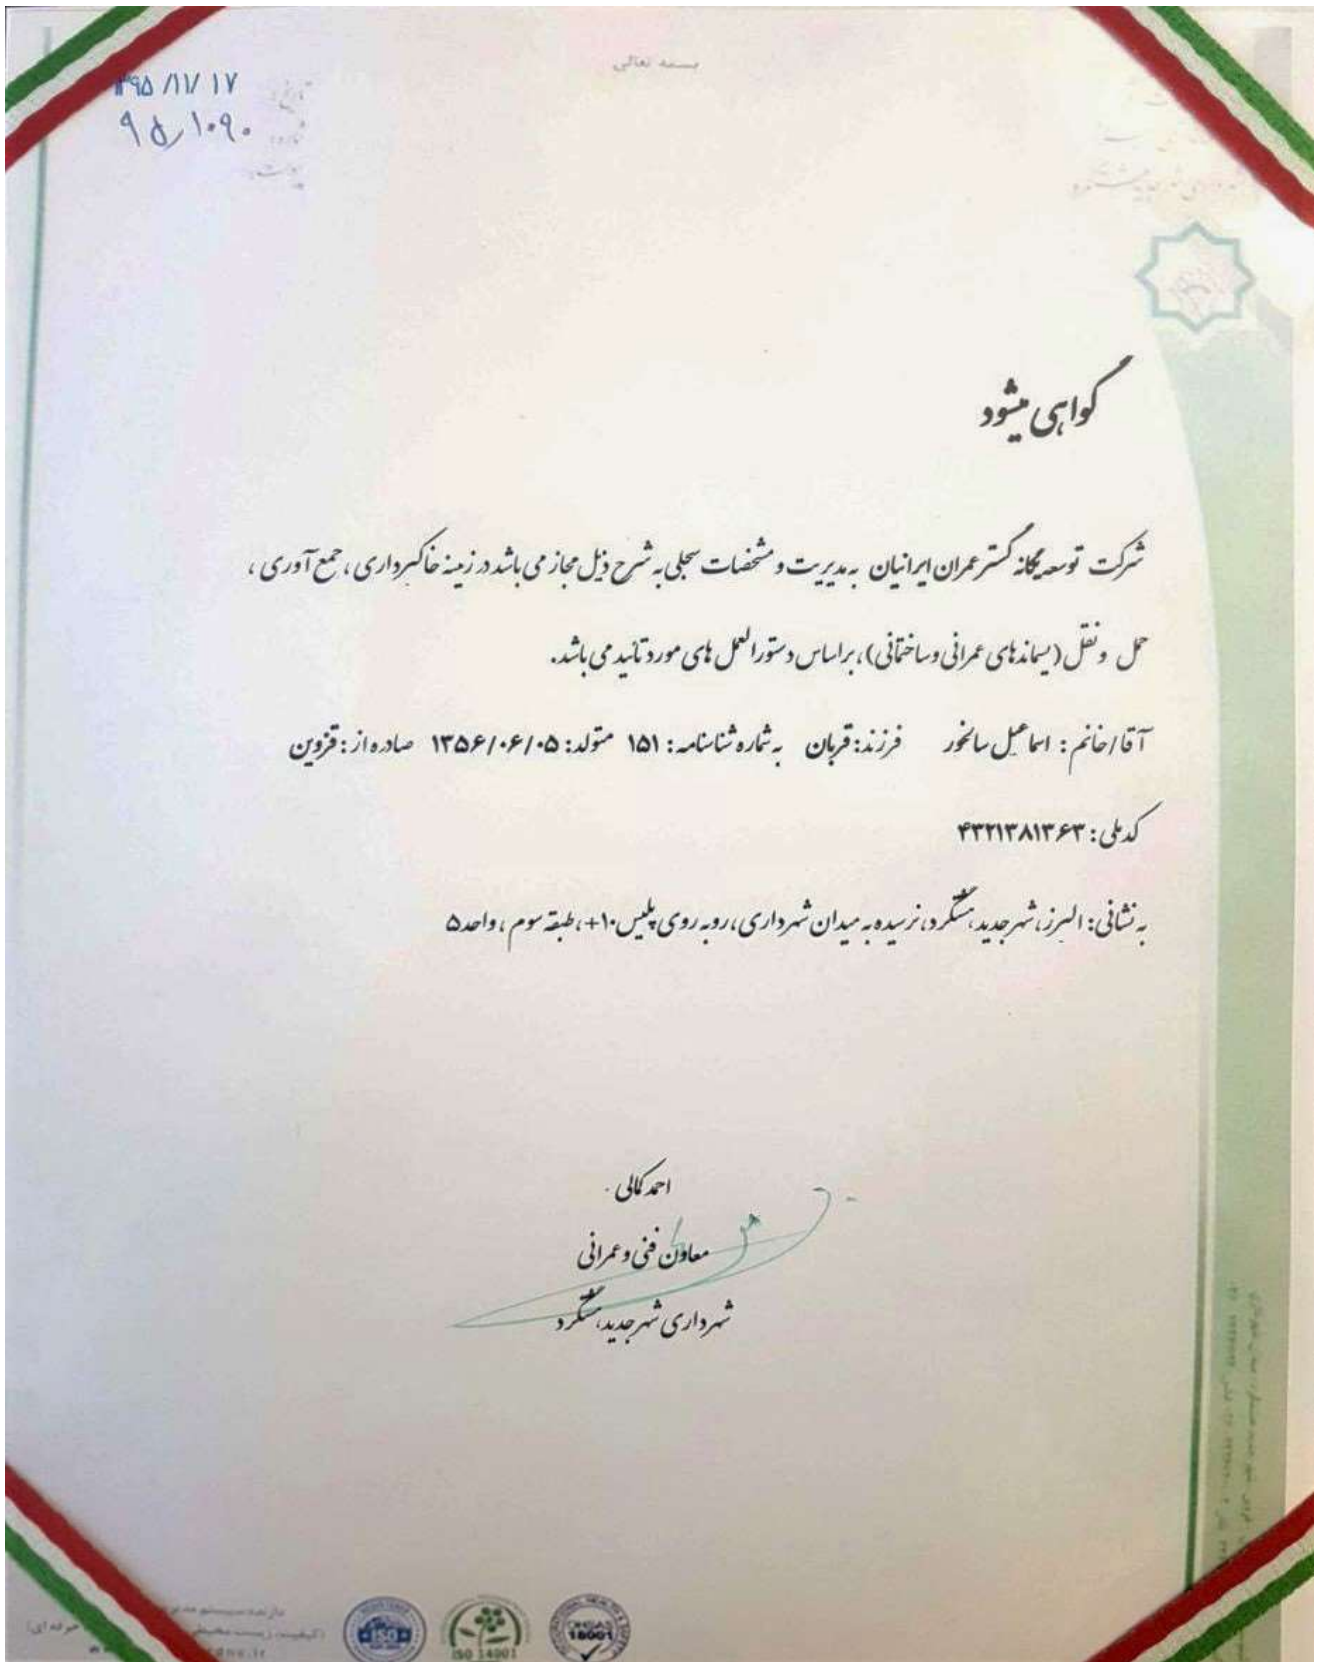 بسمه تعالی
۱۳۹۵/۱۱/۱۷
۹۵/۱۰۹۰
گواہی میشود
شرکت توسعه یگانه گستر عمران ایرانیان به مدیریت و مشخصات سجلی به شرح ذیل مجاز می باشد در زمینه خاکبرداری، جمع آوری،
حمل و نقل (پسماندهای عمرانی و ساختمانی)، براساس دستورالعمل های مورد تائید می باشد.
آقا/خانم: اسماعیل سالخور فرزند: قربان به شماره شناسنامه: ۱۵۱ متولد: ۱۳۵۶/۰۶/۰۵ صادره از: قزوین
کدملی: ۴۳۲۱۳۸۱۳۶۳
به نشانی: البرز، شهر جدید هشتگرد، نرسیده به میدان شهرداری، روبه روی پلیس ۱۰+، طبقه سوم، واحد ۵
احمد کمالی
معاون فنی و عمرانی
شهرداری شهر جدید هشتگرد
ISO
ISO 14001
OHSAS
18001